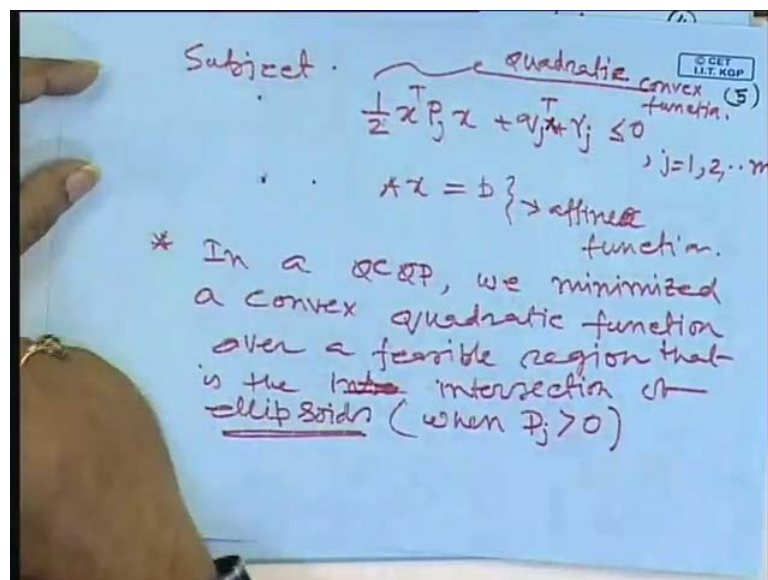 Subject.
quadratic convex function.
© CET
I.I.T. KGP
(5)
½ xᵀPⱼx + qⱼᵀx + rⱼ ≤ 0
, j=1, 2, .. m
Ax = b } → affine
function.
* In a QCQP, we minimized
a convex quadratic function
over a feasible region that
is the intersection of
ellipsoids (when Pⱼ > 0)